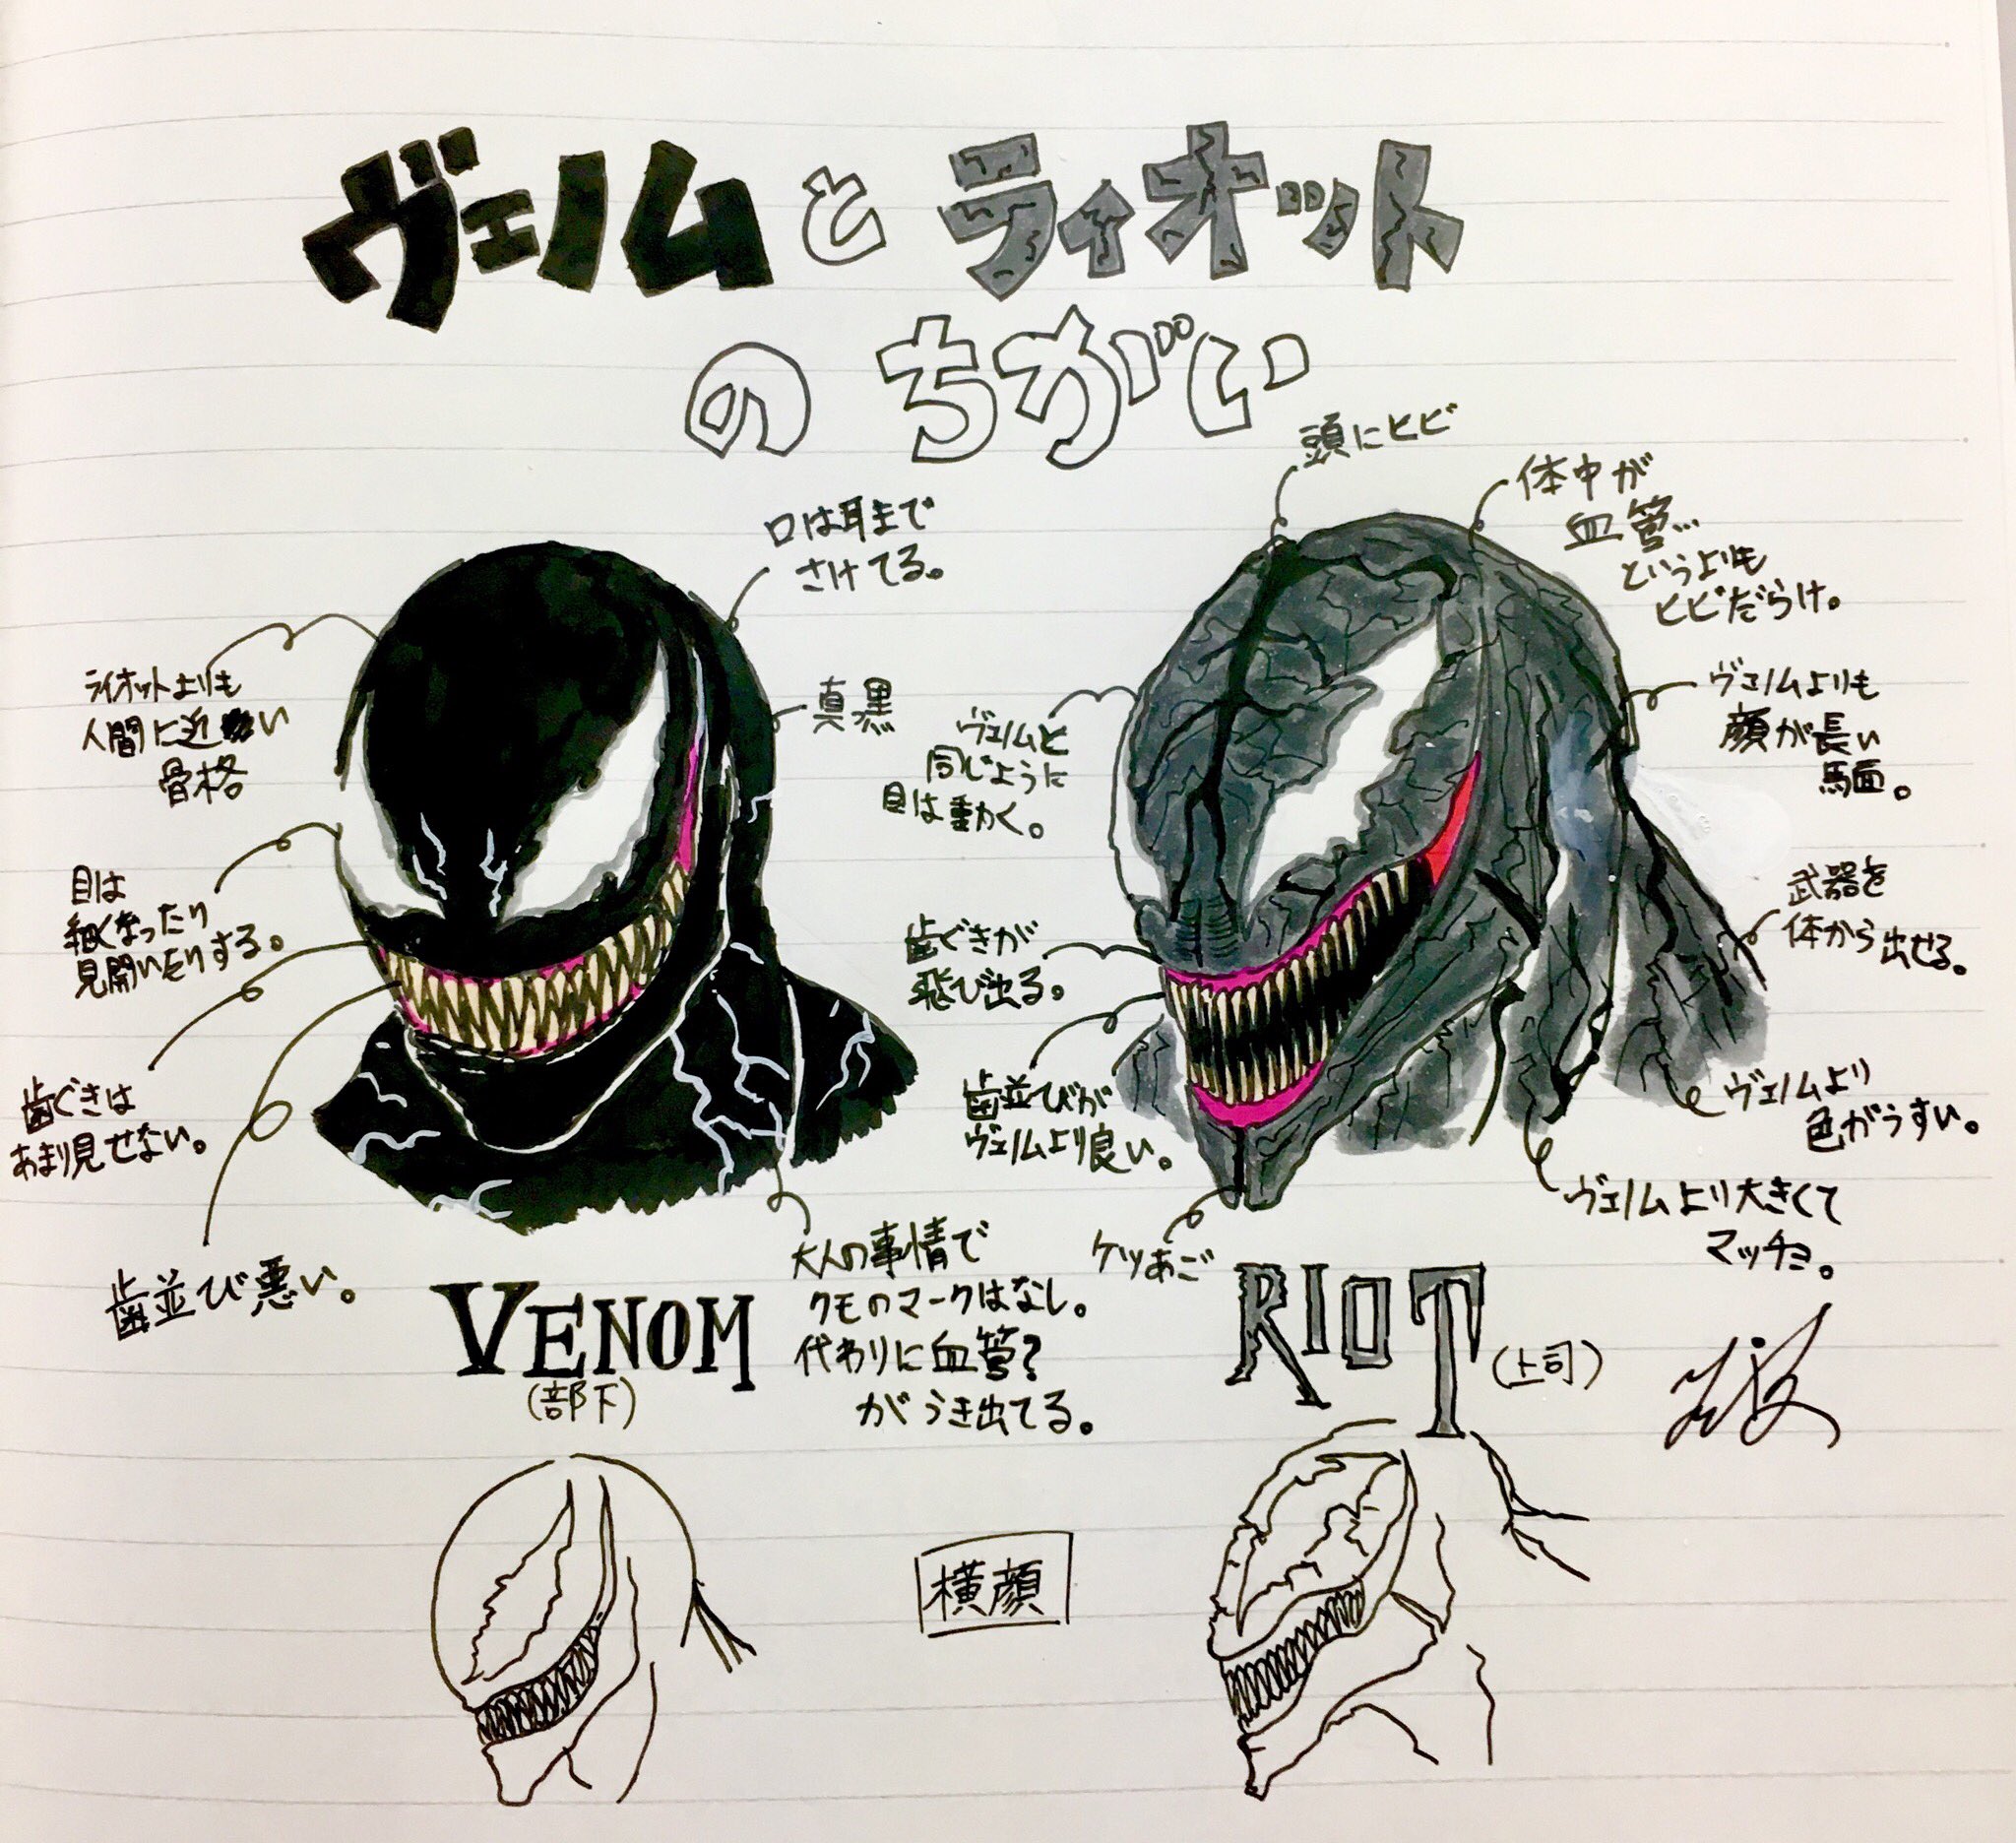 ヴェノムとライオット
のちがい
口は耳まで
さけてる。
ライオットよりも
人間に近い
骨格
真っ黒
目は
細くなったり
見開いたりする。
歯ぐきは
あまり見せない。
歯並び悪い。
大人の事情で
クモのマークはなし。
代わりに血管?
がうき出てる。
VENOM
(部下)
頭にヒビ
体中が
血管…
というよりも
ヒビだらけ。
ヴェノムと
同じように
目は動く。
ヴェノムよりも
顔が長い
馬面。
歯ぐきが
飛び出る。
武器を
体から出せる。
歯並びが
ヴェノムより良い。
ヴェノムより
色がうすい。
ケツあご
ヴェノムより大きくて
マッチョ。
RIOT
(上司)
横顔